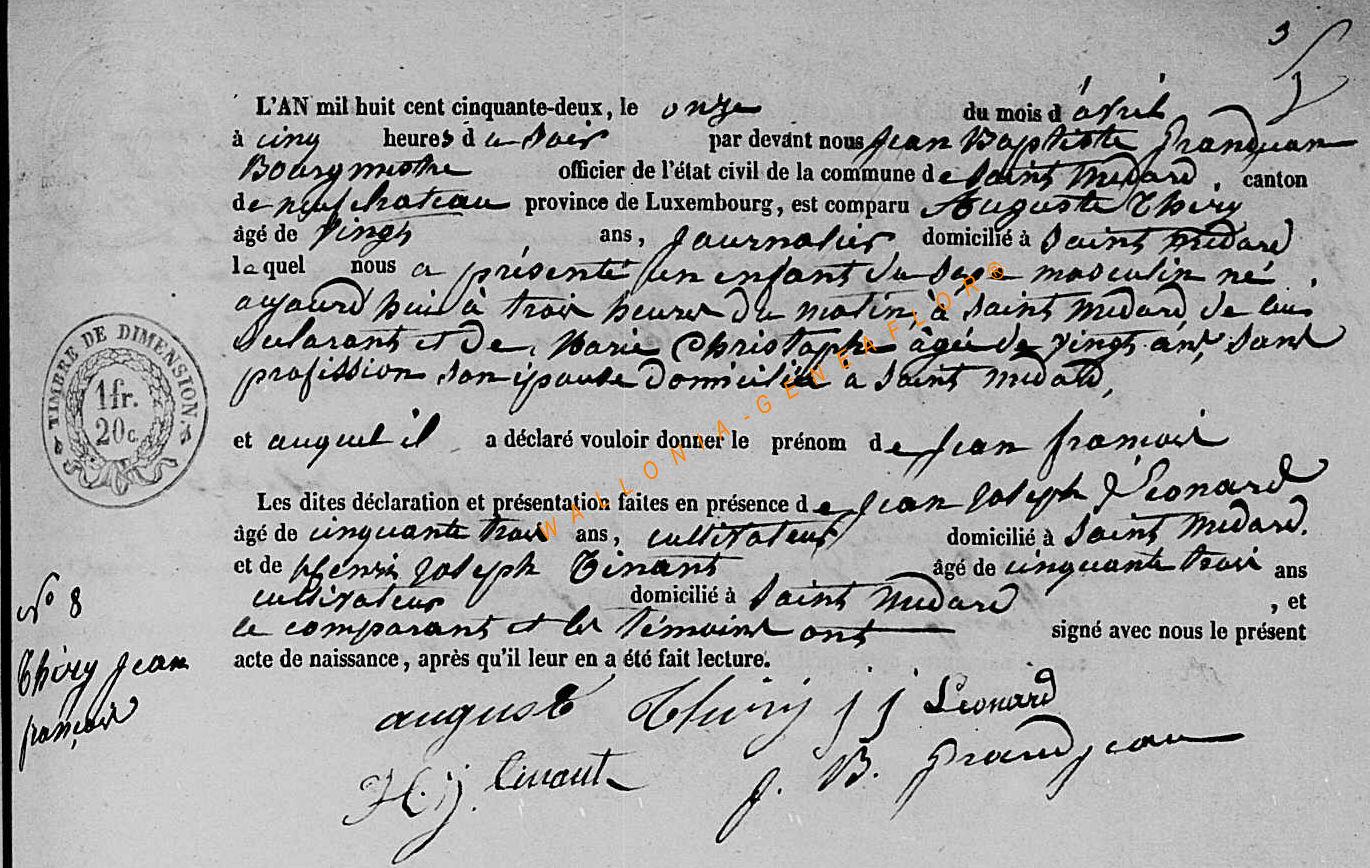 3
L'AN mil huit cent cinquante-deux, le onze du mois d'avril
à cinq heures du soir par devant nous Jean Baptiste Grandjean
Bourgmestre officier de l'état civil de la commune de Saint Médard, canton
de neufchateau province de Luxembourg, est comparu Auguste Thiry
âgé de vingt ans, journalier domicilié à Saint Médard
lequel nous a présenté un enfant du sexe masculin né
aujourd'hui à trois heures du matin à Saint Médard de lui
déclarant et de Marie Christophe âgée de vingt ans, sans
profission son épouse domiciliée à Saint Médard,
et auquel il a déclaré vouloir donner le prénom de Jean françois
Les dites déclaration et présentation faites en présence de Jean Joseph Léonard
âgé de cinquante trois ans, cultivateur domicilié à Saint Médard.
et de Henri Joseph Tinant âgé de cinquante trois ans
cultivateur domicilié à Saint Médard, et
le comparant et les témoins ont signé avec nous le présent
acte de naissance, après qu'il leur en a été fait lecture.
auguste Thiry j j Léonard
H. j. Tinant J. B. Grandjean
TIMBRE DE DIMENSION
1 fr.
20 c.
N° 8
Thiry Jean
françois
WALLONIA-GENEAFLOR®